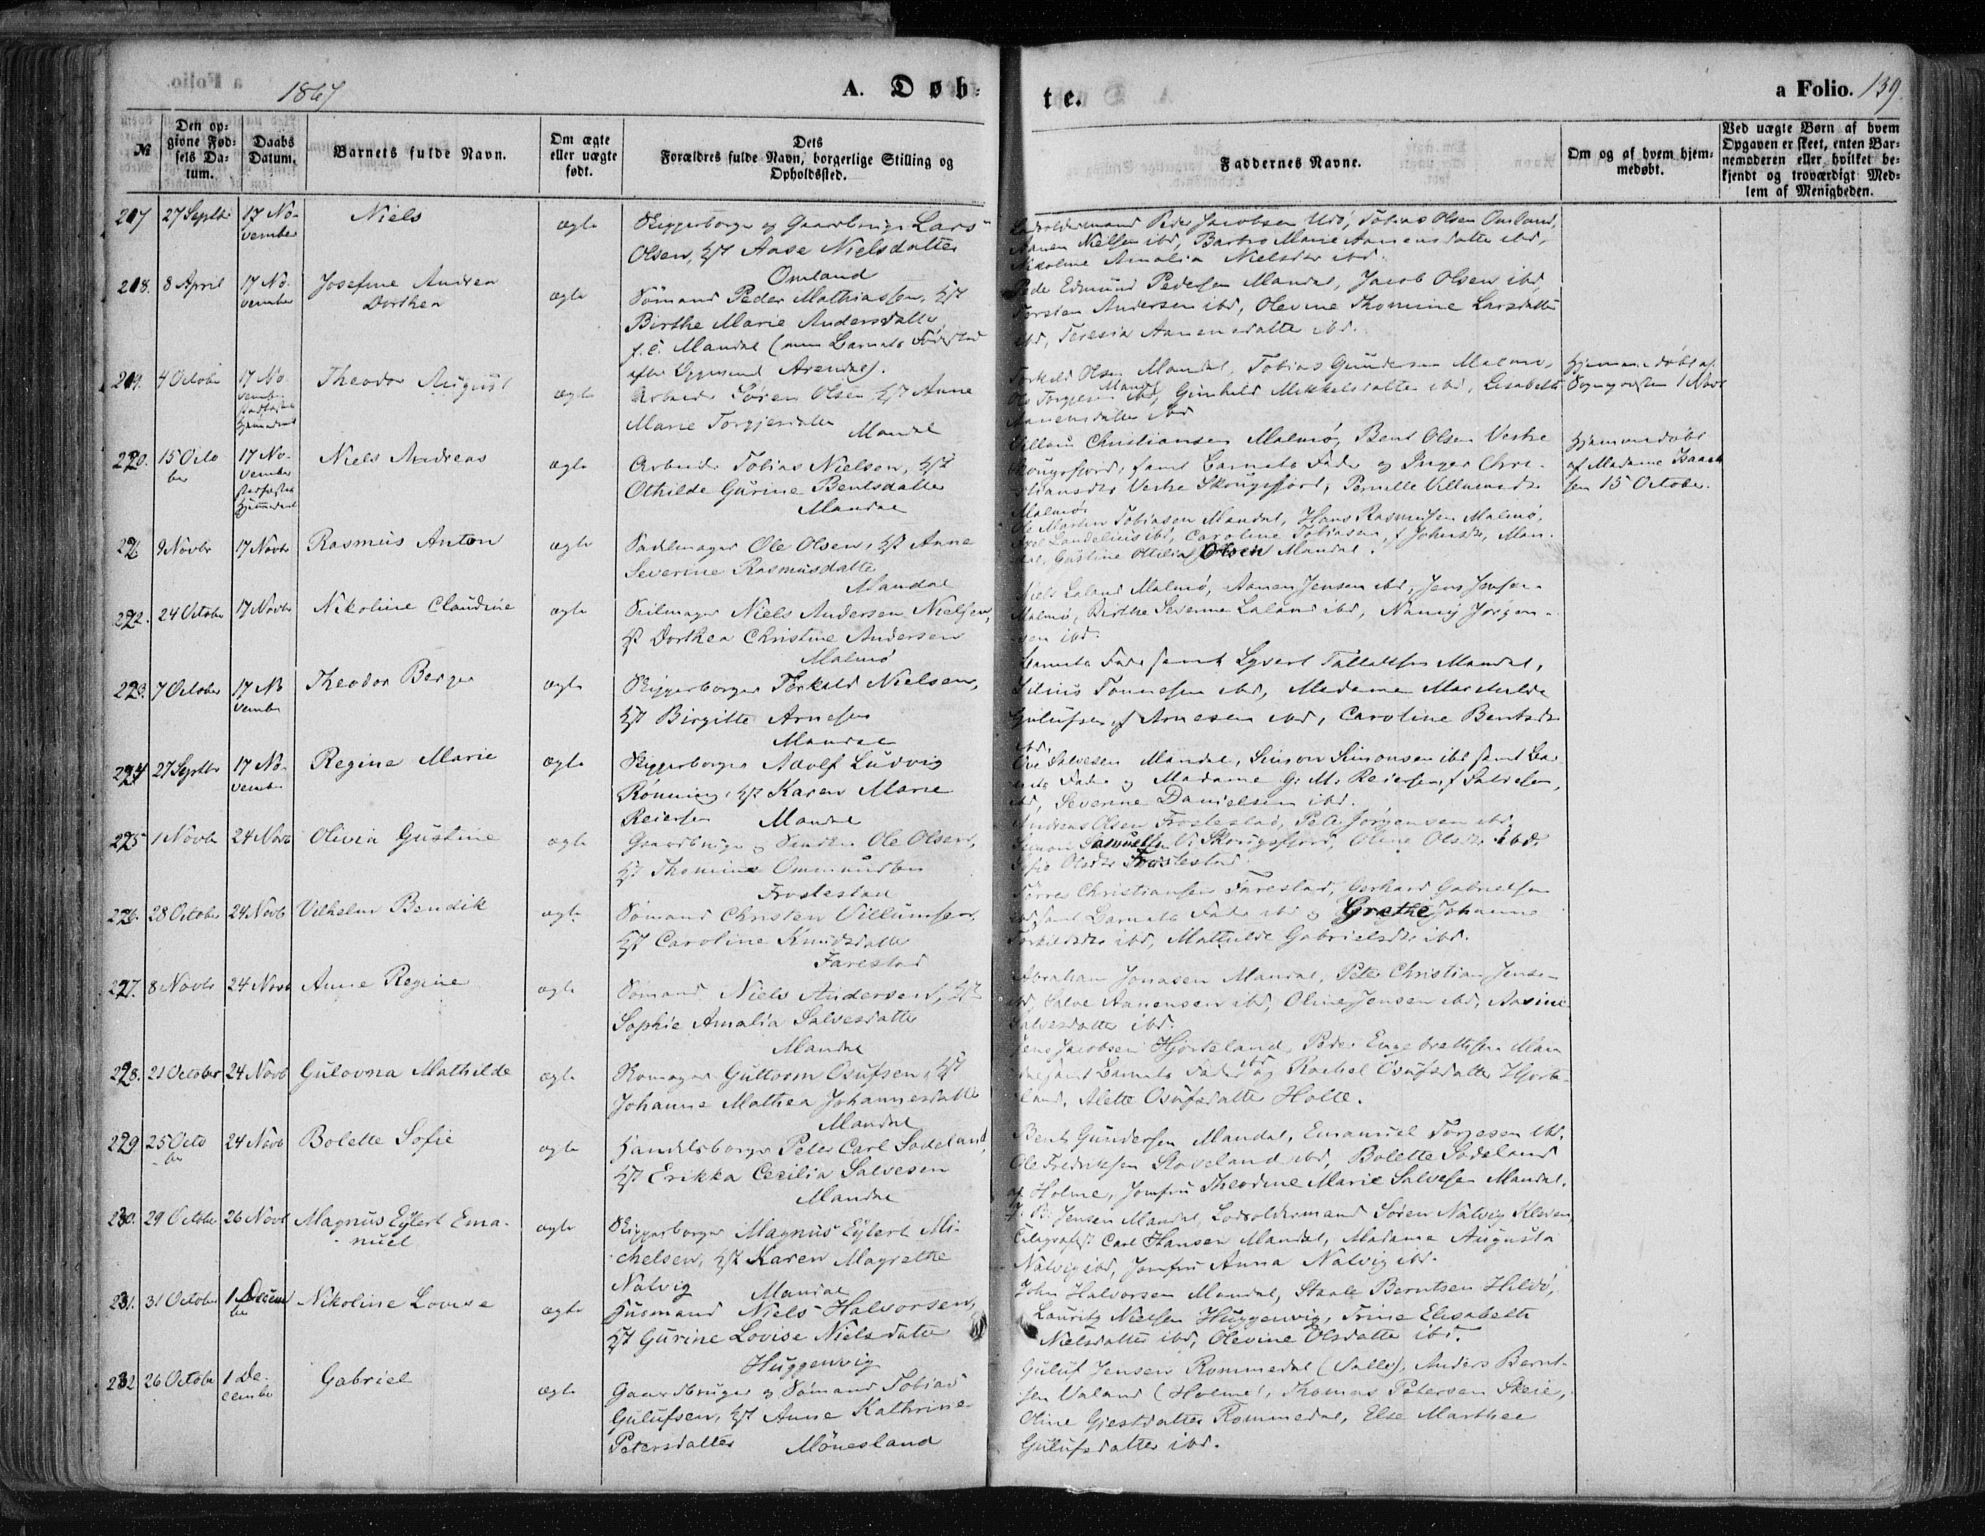 1867
A. Døb-
te.
a Folio. 139.
№
Den op-
givne Fød-
sels Da-
tum.
Daabs
Datum.
Barnets fulde Navn.
Om ægte
eller uægte
født.
Dets
Forældres fulde Navn, borgerlige Stilling og
Opholdssted.
Faddernes Navne.
Om og af hvem hjem-
medøbt.
Ved uægte Børn af hvem
Opgaven er skeet, enten Bar-
nemoderen eller hvilket be-
kjendt og troværdigt Med-
lem af Menigheden.
217 27 Septbr 17 No-
vember
Niels
ægte
Riggerborger og Gaardbruger Lars
Olsen, Hst Aase Nielsdatter
Omland
Lodsoldermand Peder Jacobsen Udø, Tobias Olsen Omland,
Aanen Nielsen ibd, Barbro Marie Aanensdatter ibd,
Nikoline Amalia Nielsdtr ibd.
218. 8 April 17 No-
vember
Josefine Andrea
Dorthea
ægte
Sømand Peder Mathiassen, Hst
Birthe Marie Andersdatter,
f. E. Mandal (men Barnets Fødested
efter Opgivend Arendal).
Peder Edmund Pedersen Mandal, Jacob Olsen ibd,
Torsten Andersen ibd, Olevine Thomine Larsdatter
ibd, Teresia Aanensdatter ibd.
219. 4 October 17 No
vember
stadfæstet
Hjemmedaab
Theodor August
ægte
Arbeider Søren Olsen, Hst Anne
Marie Torgjersdatter
Mandal
Torkeld Olsen Mandal, Tobias Gundersen Malmø,
Ole Torgjersen Mandal ibd, Gunhild Mikkelsdatter ibd, Lisabeth
Aanensdatter ibd
Hjemmedøbt af
Sognepresten 1 Novbr
220. 15 Octo
ber
17 No-
vember
stadfæstet
Hjemmedaab
Niels Andreas
ægte
Arbeider Tobias Nielsen, Hst
Othilde Gurine Bentsdatter
Mandal
Villum Christiansen Malmø, Bent Olsen Vestre
Skougsfjord, samt Barnets Fader og Inger Chri-
stiansdtr Vestre Skougsfjord, Pernille Villumsdtr
Malmø.
Hjemmedøbt
af Madame Isaack
sen 15 October.
221 9 Novbr 17 Novbr
Rasmus Anton
ægte
Sadelmager Ole Olsen, Hst Anne
Severine Rasmusdatter
Mandal
Ole Martin Tobiasen Mandal, Hans Rasmussen Malmø,
Axel Lundelius ibd, Caroline Tobiasen f Johnsdtr, Man-
dal, Gustine Ottilia Olsen Mandal.
222. 24 October 17 Novbr
Nikoline Claudine
ægte
Seilmager Niels Andersen Nielsen,
Hst Dorthea Christine Andersen
Malmø
Niels Laland Malmø, Aanen Jensen ibd, Jens Jensen
Malmø, Birthe Severine Laland ibd, Nanny Jørgen-
sen ibd.
223. 7 October 17 No
vember
Theodor Berger
ægte
Riggerborger Torkeld Nielsen,
Hst Birgitte Arnesen
Mandal
Barnets Fader samt Syvert Tallaksen Mandal,
Tønnesen ibd, Madame Mathilde
Gulufsen f Arnesen ibd, Caroline Bentsdtr
ibd.
224 27 Septbr 17 No-
vember
Regine Marie
ægte
Riggerborger Adolf Ludvig
Rønning, Hst Karen Marie
Reiersen Mandal
Ole Salvesen Mandal, Simon Simonsen ibd samt Bar
nets Fader og Madame G. M. Reiersen, f Salvesen,
ibd, Severine Danielsen ibd.
225 1 Novbr 24 Novb
Olivia Gustine
ægte
Gaardbruger og Snedker Ole Olsen,
Hst Thomine Ommundsen
Frostestad
Andreas Olsen Frostestad, Peter Jørgensen ibd,
Simon Samuelsen V. Skougsfjord, Oline Olsdtr ibd,
Sofie Olsdtr Frostestad.
226. 28 October 24 Novb
Vilhelm Bendik
ægte
Sømand Christen Villumsen,
Hst Caroline Knudsdatter
Farestad
Tørres Christiansen Farestad, Gerhard Gabrielsen
ibd, samt Barnets Fader ibd og Grethe Johanne
Torkildsdtr ibd, Mathilde Gabrielsdtr ibd.
227. 8 Novbr 24 Novb
Anne Regine
ægte
Sømand Niels Andersen, Hst
Sophie Amalia Salvesdatter
Mandal
Abraham Jonasen Mandal, Peter Christian Jensen
ibd, Salve Aanensen ibd, Oline Jensen ibd, Aasine
Salvesdatter ibd.
228. 21 October 24 Novb
Gulovna Mathilde
ægte
Romager Guttorm Osufsen, Hst
Johanne Mathea Johannesdatter
Mandal
Jens Jacobsen Hjorteland, Peder Engebrettsen Man
dal samt Barnets Fader ibd og Rachel Osufsdatter Hjorte-
land, Alette Osufsdatter Holte.
229 25 Octo
ber
24 Novb
Bolette Sofie
ægte
Handelsborger Peter Carl Sodeland,
Hst Erikka Cecilia Salvesen
Mandal
Bent Gundersen Mandal, Emanuel Torjesen ibd.
Ole Fredriksen Stoveland ibd, Bolette Sodeland
af Holme, Jomfru Theodine Marie Salvesen Mandal.
230. 29 October 26 Novb
Magnus Eylert Ema-
nuel
ægte
Riggerborger Magnus Eylert Mi-
chelsen, Hst Karen Magrethe
Natvig Mandal
Jensen Mandal, Lodsoldermand Søren Natvig Kleven,
Telegrafist Carl Hansen Mandal, Madame Augusta
Natvig ibd, Jomfru Anna Natvig ibd.
231. 31 October 1 Decem
ber
Nikoline Lovise
ægte
Husmand Niels Halvorsen,
Hst Gurine Lovise Nielsdatter
Huggenvig
John Halvorsen Mandal, Staale Berntsen Hildø,
Lauritz Nielsen Huggenvig, Trine Elisabeth
Nielsdatter ibd, Olevine Olsdatter ibd.
232 26 October 1 De-
cember
Gabriel
ægte
Gaardbruger og Sømand Tobias
Gulufsen, Hst Anne Kathrine
Petersdatter Mønesland
Guluf Jensen Rommedal (Halse), Anders Bernt-
sen Valand (Holme), Thomas Petersen Skeie,
Oline Gjestdatter Rommedal, Else Marthea
Gulufsdatter ibd.